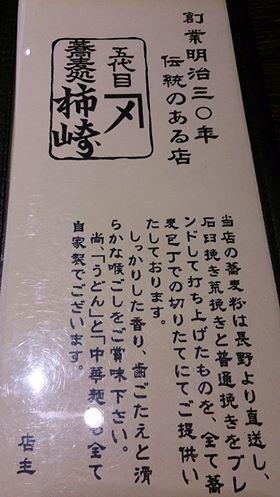 創業明治三〇年
伝統のある店
五代目
蕎麦処
柿崎
当店の蕎麦粉は長野より直送し、
石臼挽き荒挽きと普通挽きをブレ
ンドして打ち上げたものを、全て蕎
麦包丁での切りたてにてご提供い
たしております。
しっかりした香り、歯ごたえと滑
らかな喉ごしをご賞味下さい。
尚、「うどん」と「中華麺」も全て
自家製でございます。
店主